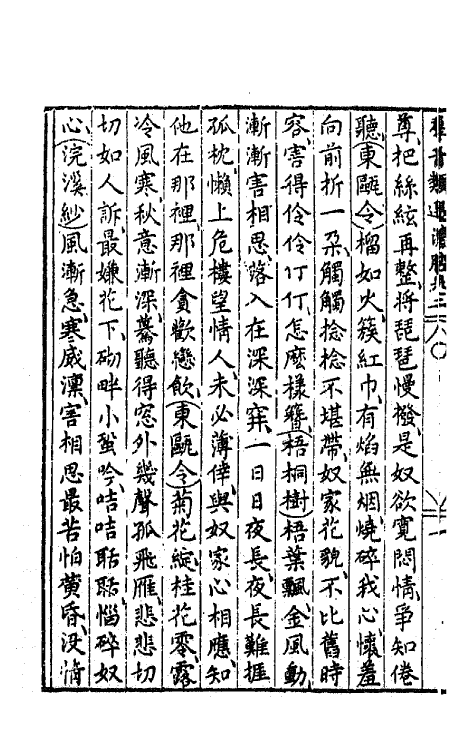 羣音類選 清腔卷三
尊、把絲絃再整、將琵琶慢撥、是奴欲寬悶情、爭知倦
聽、(東甌令)榴如火、簇紅巾、有焰無烟燒碎我心、懷羞
向前折一朶、觸觸捻捻不堪帶、奴家花貌、不比舊時
容、害得伶伶仃仃、怎麽樣簪、(梧桐樹)梧葉飄、金風動、
漸漸害相思、落入在深深穽、一日日夜長、夜長難捱
孤枕、懶上危樓望情人、未必薄倖、與奴家心相應、知
他在那裡、那裡貪歡戀飲、(東甌令)菊花綻、桂花零、露
冷風寒、秋意漸深、驀聽得窓外幾聲孤飛雁、悲悲切
切如人訴、最嫌花下、砌畔小蛩吟、咭咭聒聒、惱碎奴
心、(浣溪紗)風漸急、寒威凛、害相思最苦怕黄昏、没情